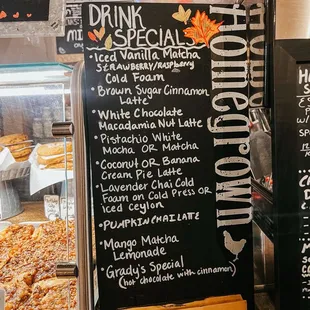 DRINK
SPECIALS
Homegrown
• Iced Vanilla Matcha
STRAWBERRY/RASPBERRY
Cold Foam
• Brown Sugar Cinnamon
Latte
• White Chocolate
Macadamia Nut Latte
• Pistachio White
Mocha OR Matcha
• Coconut OR Banana
Cream Pie Latte
• Lavender Chai Cold
Foam on Cold Press OR
iced Ceylon
• PUMPKIN CHAI LATTE
• Mango Matcha
Lemonade
• Grady's Special
(hot chocolate with cinnamon)